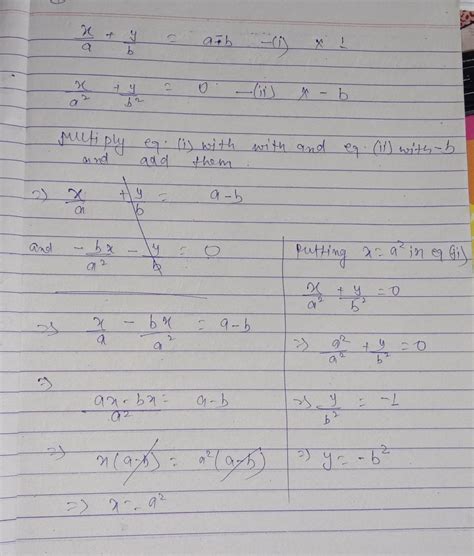 x/a + y/b = a-b —(i) × 1
x/a² + y/b² = 0 —(ii) × - b
Multiply eq. (i) with with and eq. (ii) with -b
and add them.
=> x/a + y/b = a-b
and - bx/a² - y/b = 0
=> x/a - bx/a² = a-b
=>
ax-bx/a² = a-b
=> x(a-b) = a²(a-b)
=> x = a²
Putting x = a² in eq (ii)
x/a² + y/b² = 0
=> a²/a² + y/b² = 0
=> y/b² = -1
=> y = -b²